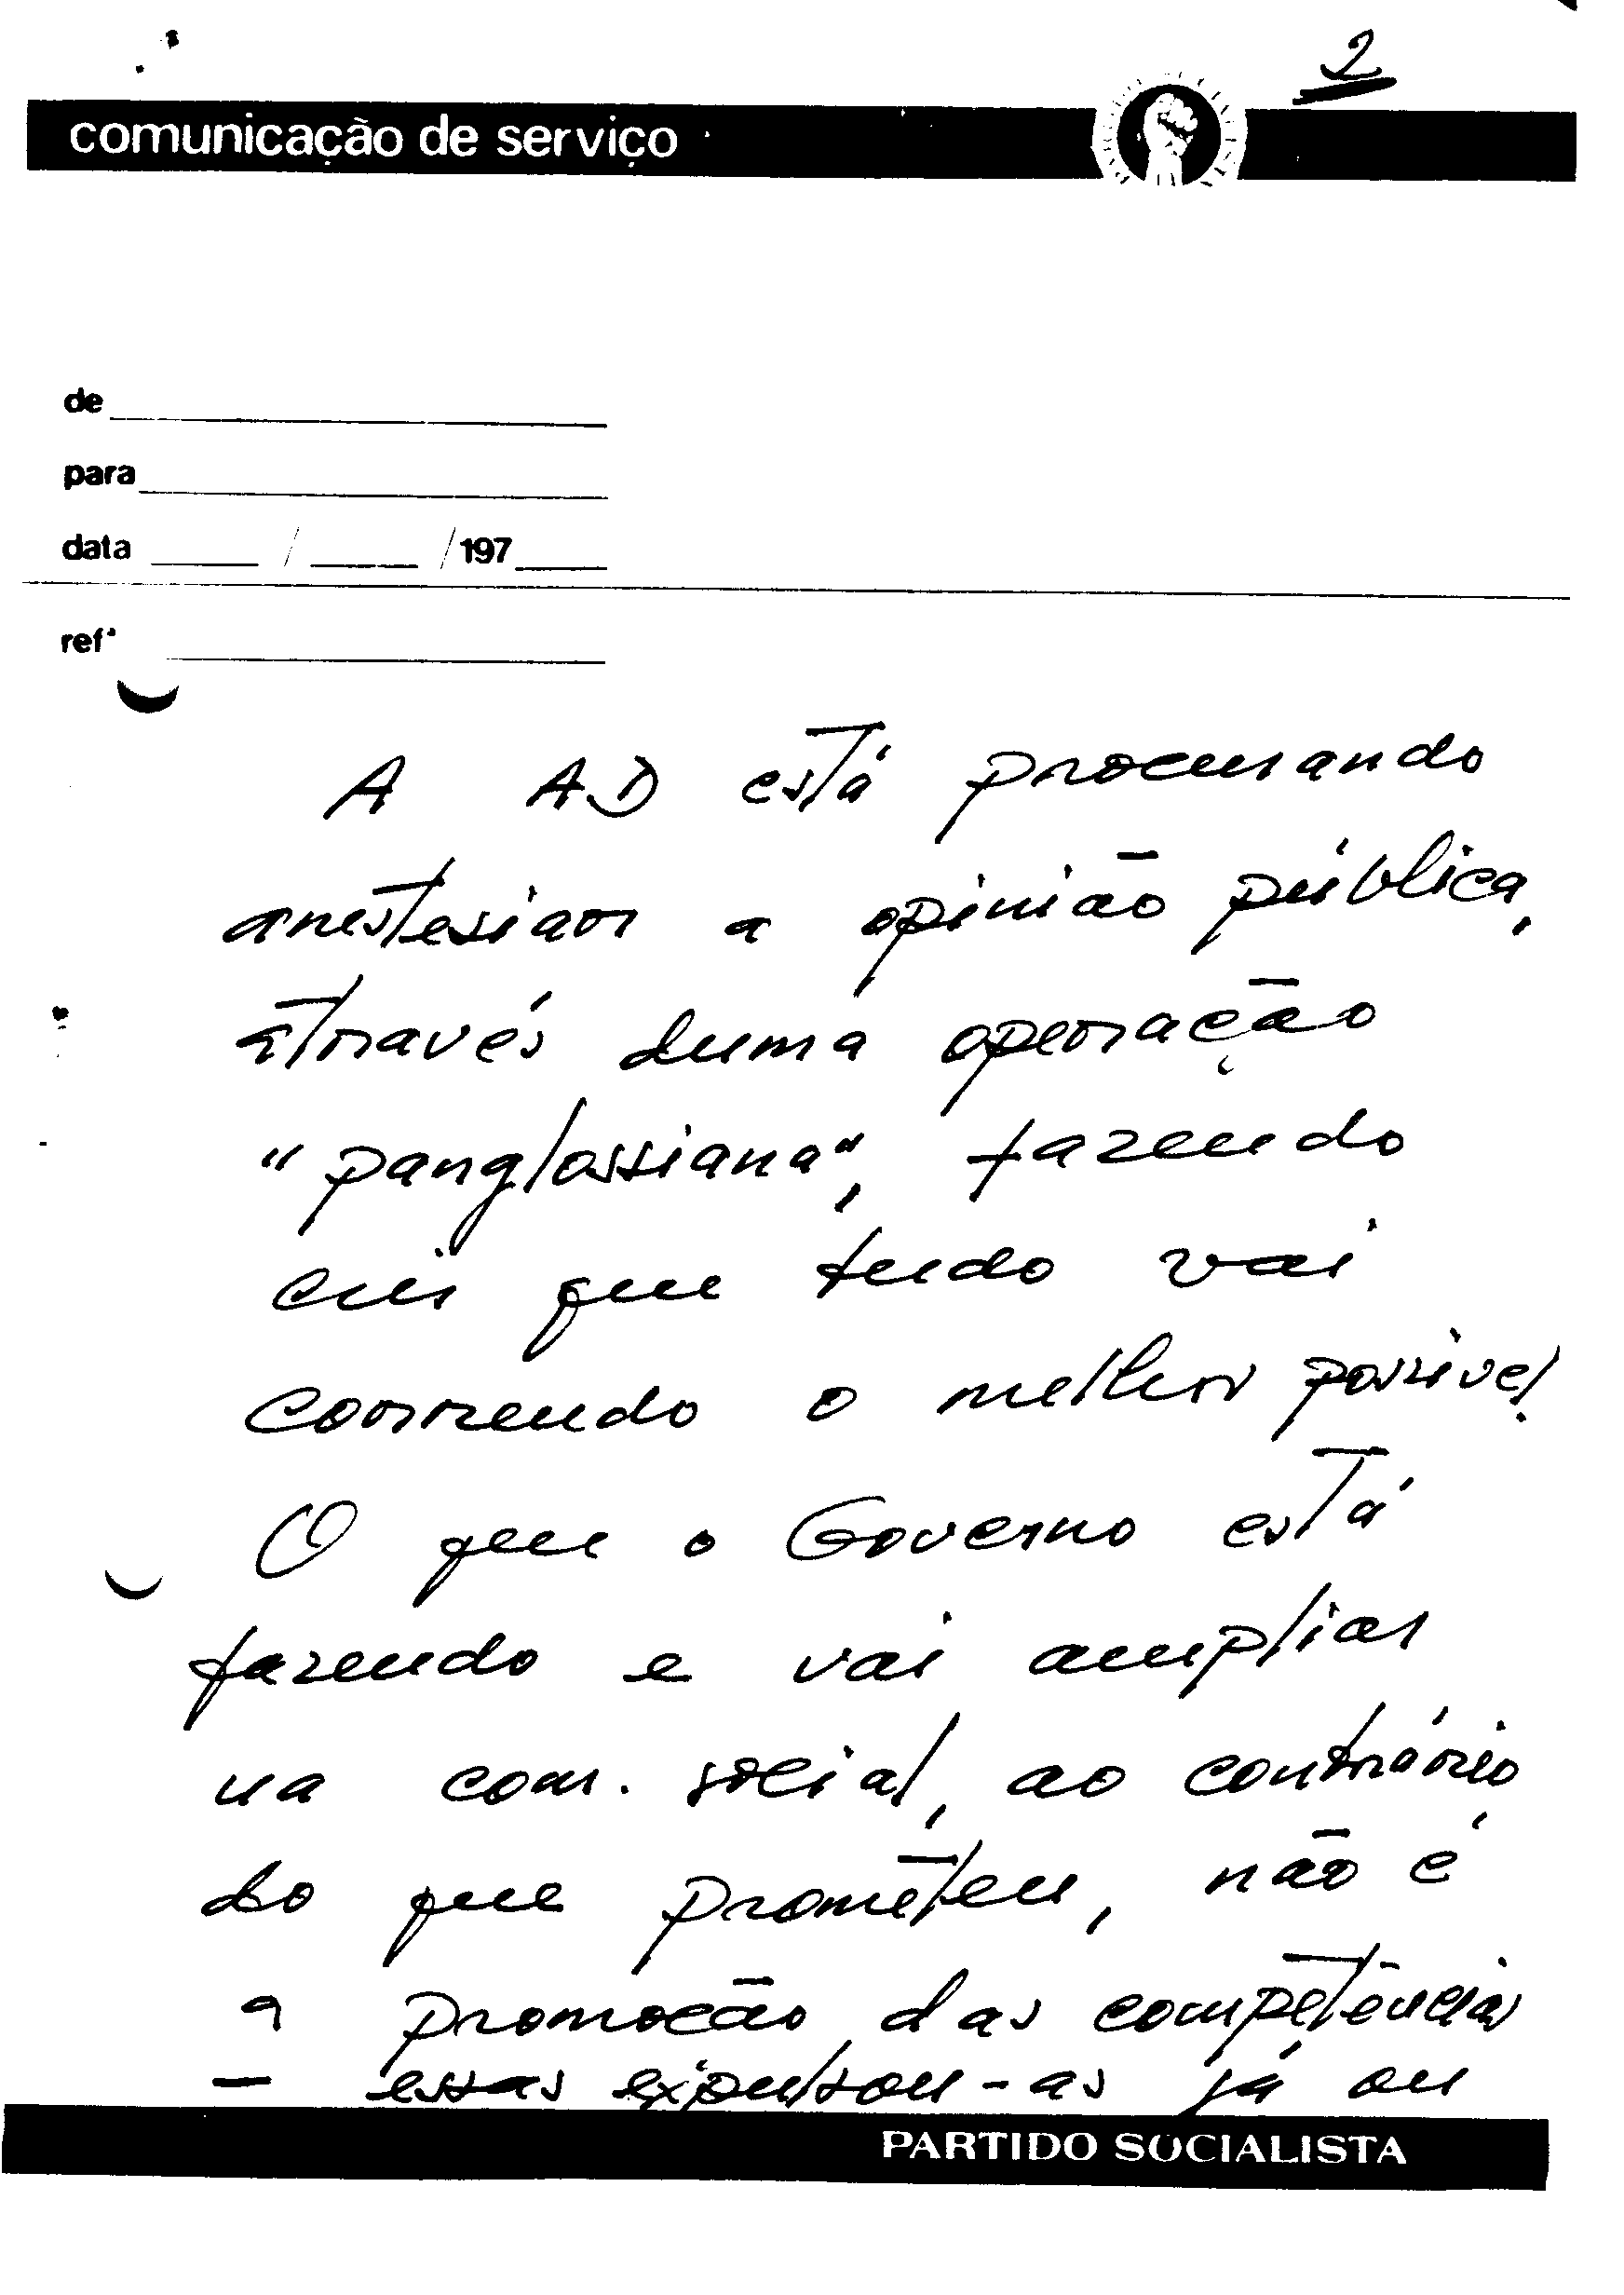 2
comunicação de serviço
de
para
data / / 197
refª
A AD está procurando
anestesiar a opinião pública,
através duma operação
"panglossiana", fazendo
crer que tudo vai
correndo o melhor possível.
O que o Governo está
fazendo e vai ampliar
na com. social, ao contrário
do que prometeu, não é
a promoção das competências
- essas expulsou-as já ou
PARTIDO SOCIALISTA